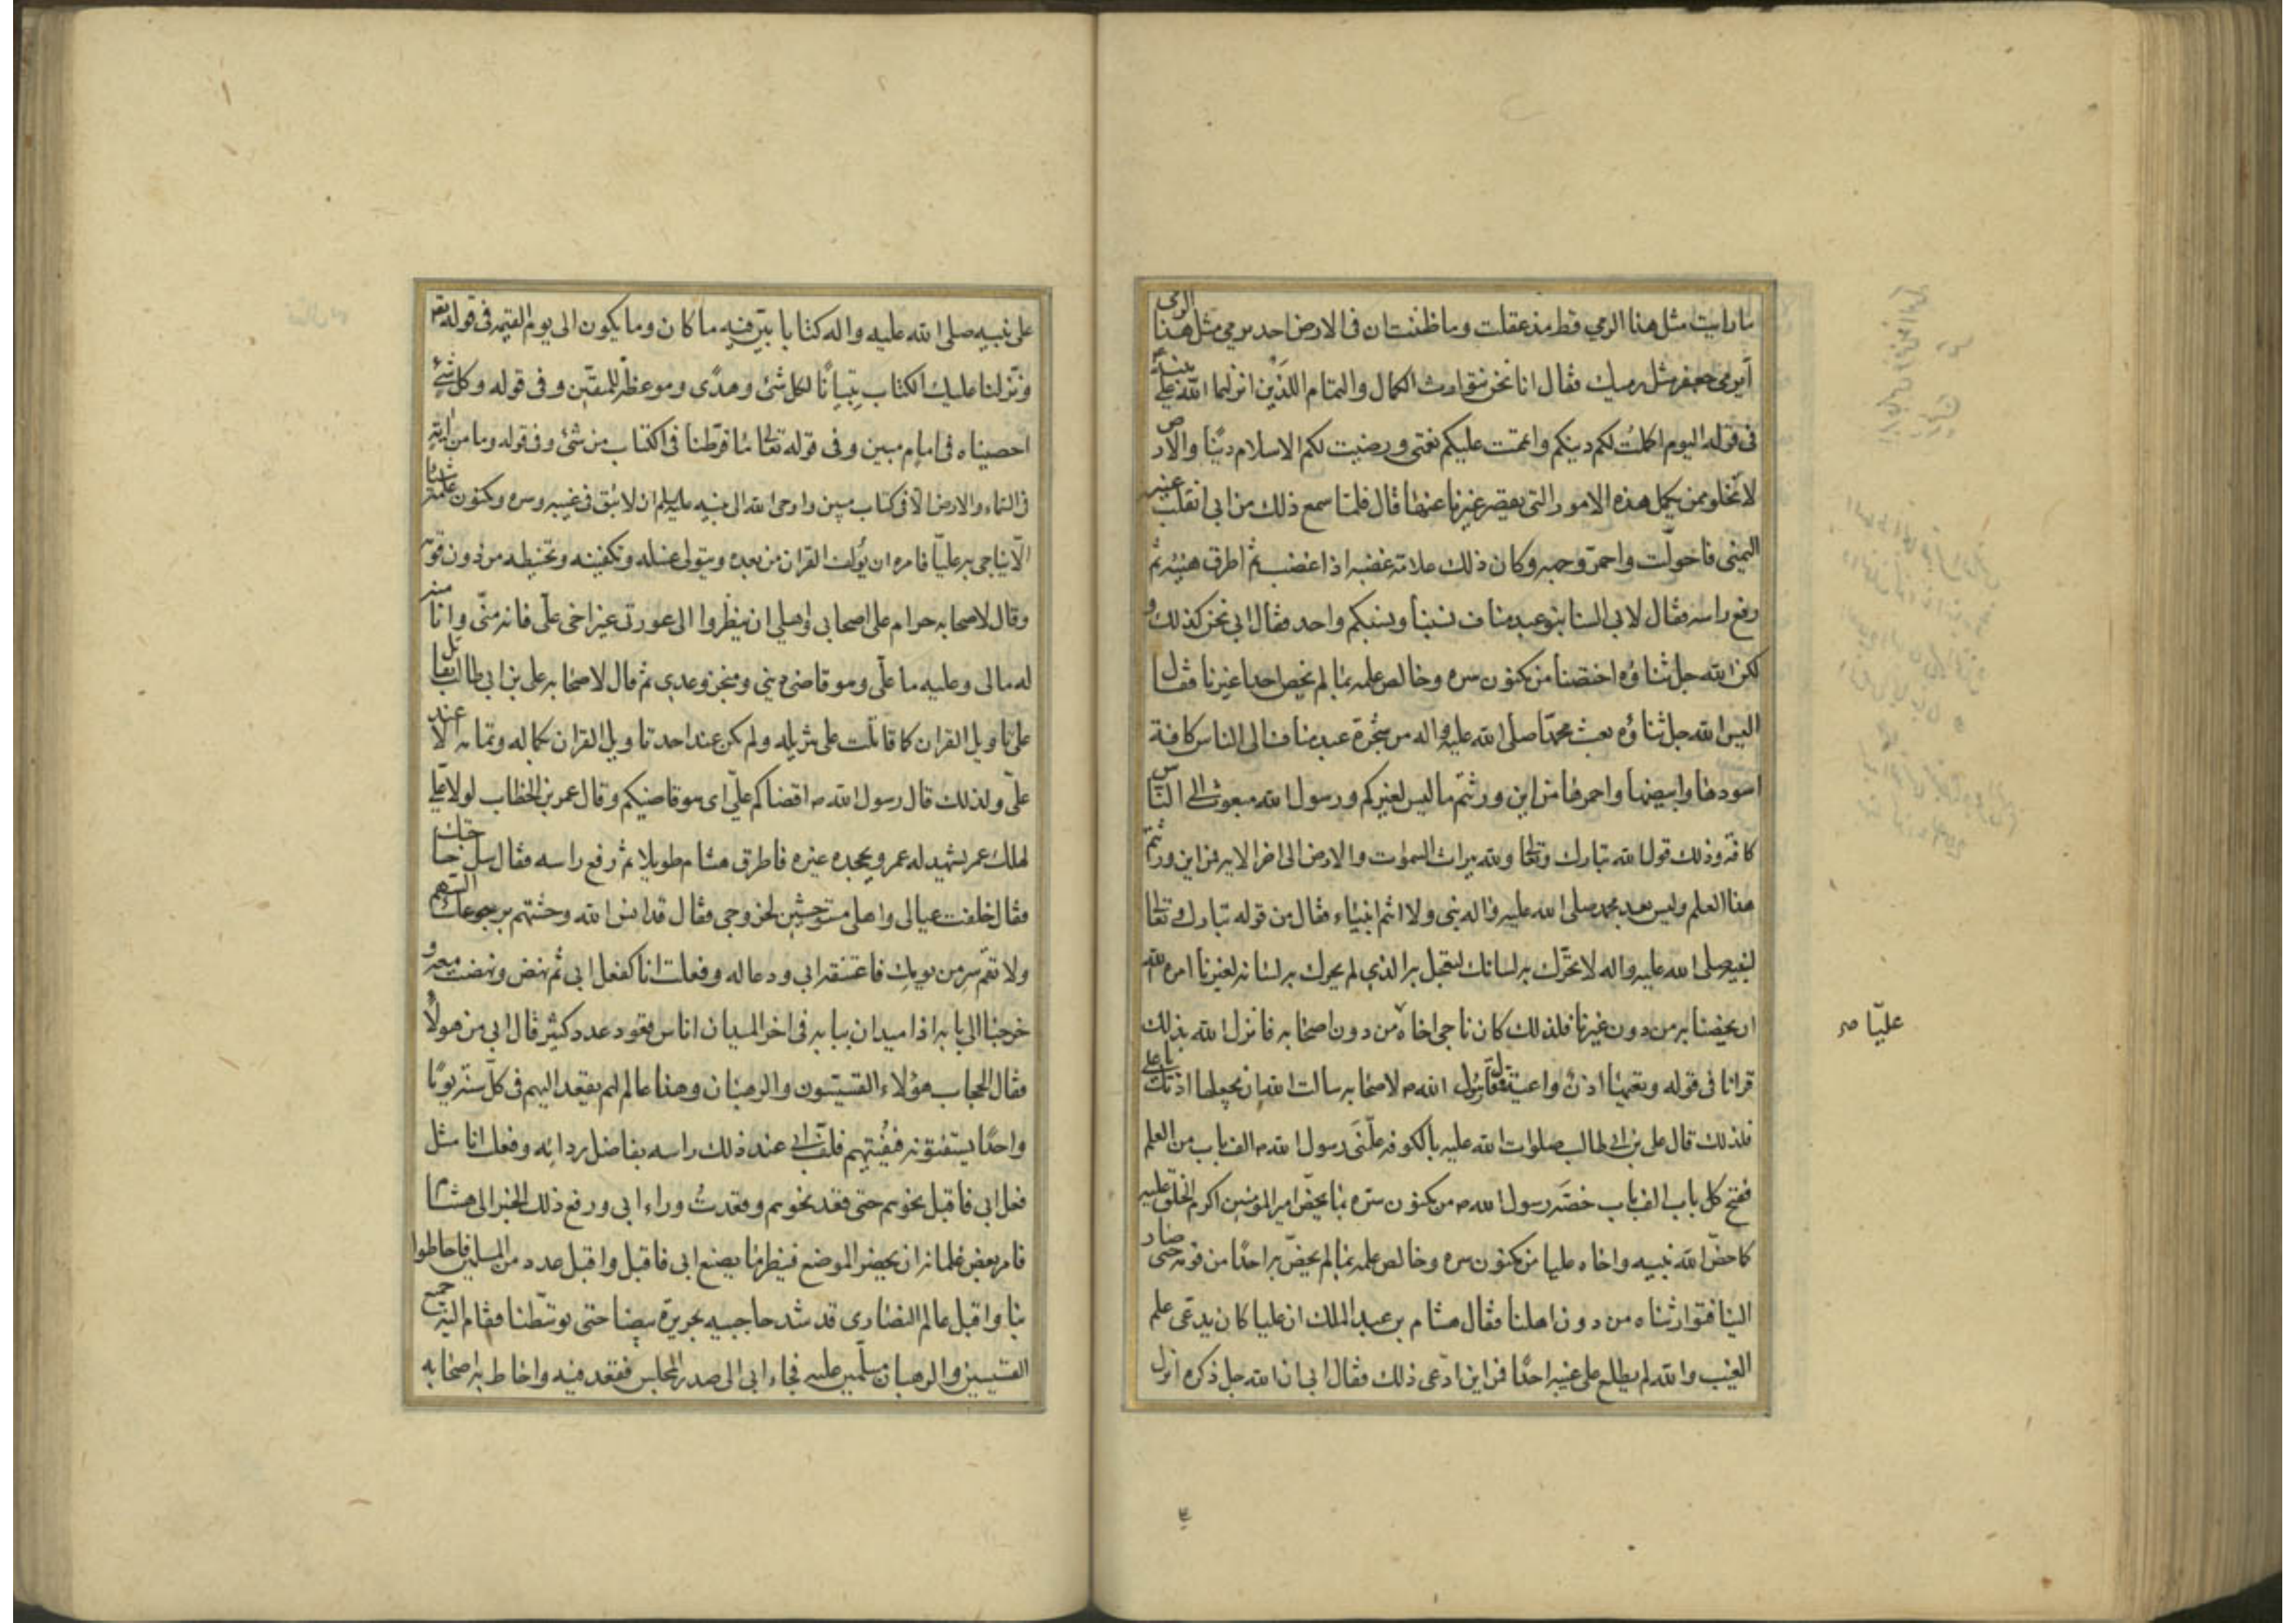 ما رايت مثل هذا الرمي قط مذ عقلت وما ظننت ان فى الارض احد يرمي مثل هذا الرمى
أيرمي جعفر مثل رميك فقال انا نحن نتوارث الكمال والتمام اللذين انزلهما الله على نبيه
فى قوله اليوم اكملت لكم دينكم واتممت عليكم نعمتى ورضيت لكم الاسلام دينًا والارض
لا تخلو ممن يكمل هذه الامور التى يقصر غيرنا عنها قال فلما سمع ذلك من ابى انقلبت عينه
اليمنى فاحولّت واحمرّ وجهه وكان ذلك علامة غضبه اذا غضب ثم اطرق هنيئه ثم
رفع راسه فقال لابى السنا بنو عبد مناف نسبنا ونسبكم واحد فقال ابى نحن كذلك و
لكن الله جل ثناؤه اختصنا من مكنون سره وخالص علمه بما لم يخص احدا غيرنا فقال
اليس الله جل ثناؤه بعث محمدًا صلى الله عليه واله من شجرة عبد مناف الى الناس كافة
اسودها وابيضها واحمرها من اين ورثتم ما ليس لغيركم ورسول الله مبعوث الى الناس
كافة وذلك قول الله تبارك وتعالى ولله ميراث السموات والارض الى اخر الاية فمن اين ورثتم
هذا العلم وليس بعد محمد صلى الله عليه واله نبى ولا انتم انبياء فقال من قوله تبارك وتعالى
لنبيه صلى الله عليه واله لا تحرّك به لسانك لتعجل به الذى لم يحرك به لسانه لغيرنا امره الله
ان يخصنا به من دون غيرنا فلذلك كان ناجى اخاه من دون اصحابه فانزل الله بذلك
عليّا صح
قرانا فى قوله وتعيها اذن واعية فقال رسول الله ص لاصحابه سالت الله ان يجعلها اذنك يا على
فلذلك قال على بن ابى طالب صلوات الله عليه بالكوفه علّمنى رسول الله ص الف باب من العلم
ففتح كل باب الف باب خصّه رسول الله ص من مكنون سرّه بما يخصّ امير المومنين اكرم الخلق عليه
كما خصّ الله نبيه واخاه عليا من مكنون سره وخالص علمه بما لم يخصّ به احدًا من قومه حتى صار
الينا فتوارثناه من دون اهلنا فقال هشام بن عبد الملك ان عليا كان يدعى علم
الغيب والله لم يطلع على غيبه احدًا فمن اين ادّعى ذلك فقال ابى ان الله جل ذكره انزل
على نبيه صلى الله عليه واله كتابا بيّن فيه ما كان وما يكون الى يوم القيمه فى قوله تع
ونزلنا عليك الكتاب تبيانًا لكل شئ وهدًى وموعظة للمتقين وفى قوله وكل شئ
احصيناه فى امام مبين وفى قوله تعالى ما فرّطنا فى الكتاب من شئ وفى قوله وما من
فى السماء والارض الا فى كتاب مبين واوحى الله الى نبيه عليه السلم ان لا يبق فى غيبه وسره ومكنون علمه شيئا
الّا يناجى به عليّا فامره ان يؤلف القران من بعده ويتولى غسله وتكفينه وتحنيطه من دون قومه
وقال لاصحابه حرام على اصحابى واهلى ان ينظروا الى عورتى غير اخى علّى فانه منّى وانا منه
له مالى وعليه ما علّى وهو قاضى دينى ومنجز وعدى ثم قال لاصحابه على بن ابى طالب يقاتل
على تاويل القران كما قاتلت على تنزيله ولم يكن عند احد تاويل القران بكماله وتمامه الا عند
علّى ولذلك قال رسول الله ص اقضاكم علّى اى هو قاضيكم وقال عمر بن الخطاب لولا على
لهلك عمر يشهد له عمر ويجحده غيره فاطرق هشام طويلا ثم رفع راسه فقال سل حاجتك
فقال خلفت عيالى واهلى مستوحشين لخروجى فقال قد انس الله وحشتهم برجوعك اليهم
ولا تقم سر من يومك فاعتنقه ابى ودعا له وفعلت انا كفعل ابى ثم نهض ونهضت معه و
خرجنا الى بابه اذا ميدان ببابه فى اخر الميدان اناس قعود عدد كثير قال ابى من هولاء
فقال الحجاب هؤلاء القسيسون والرهبان وهذا عالم لهم يقعد اليهم فى كلّ سنة يومًا
واحدًا يستفتونه فيفتيهم فلفّ ابى عند ذلك راسه بفاضل ردائه وفعلت انا مثل
فعل ابى فاقبل نحوهم حتى قعد نحوهم وقعدتُ وراء ابى ورفع ذلك الخبر الى هشام
فامر بعض غلمانه ان يحضر الموضع فينظر ما يصنع ابى فاقبل واقبل عدد من المسلمين فاحاطوا
بنا واقبل عالم النصارى قد شد حاجبيه بحريرة بيضا حتى توسّطنا فقام اليه جميع
القسيسين والرهبان مسلّمين عليه فجاء ابى الى صدر المجلس فقعد فيه واحاط به اصحابه